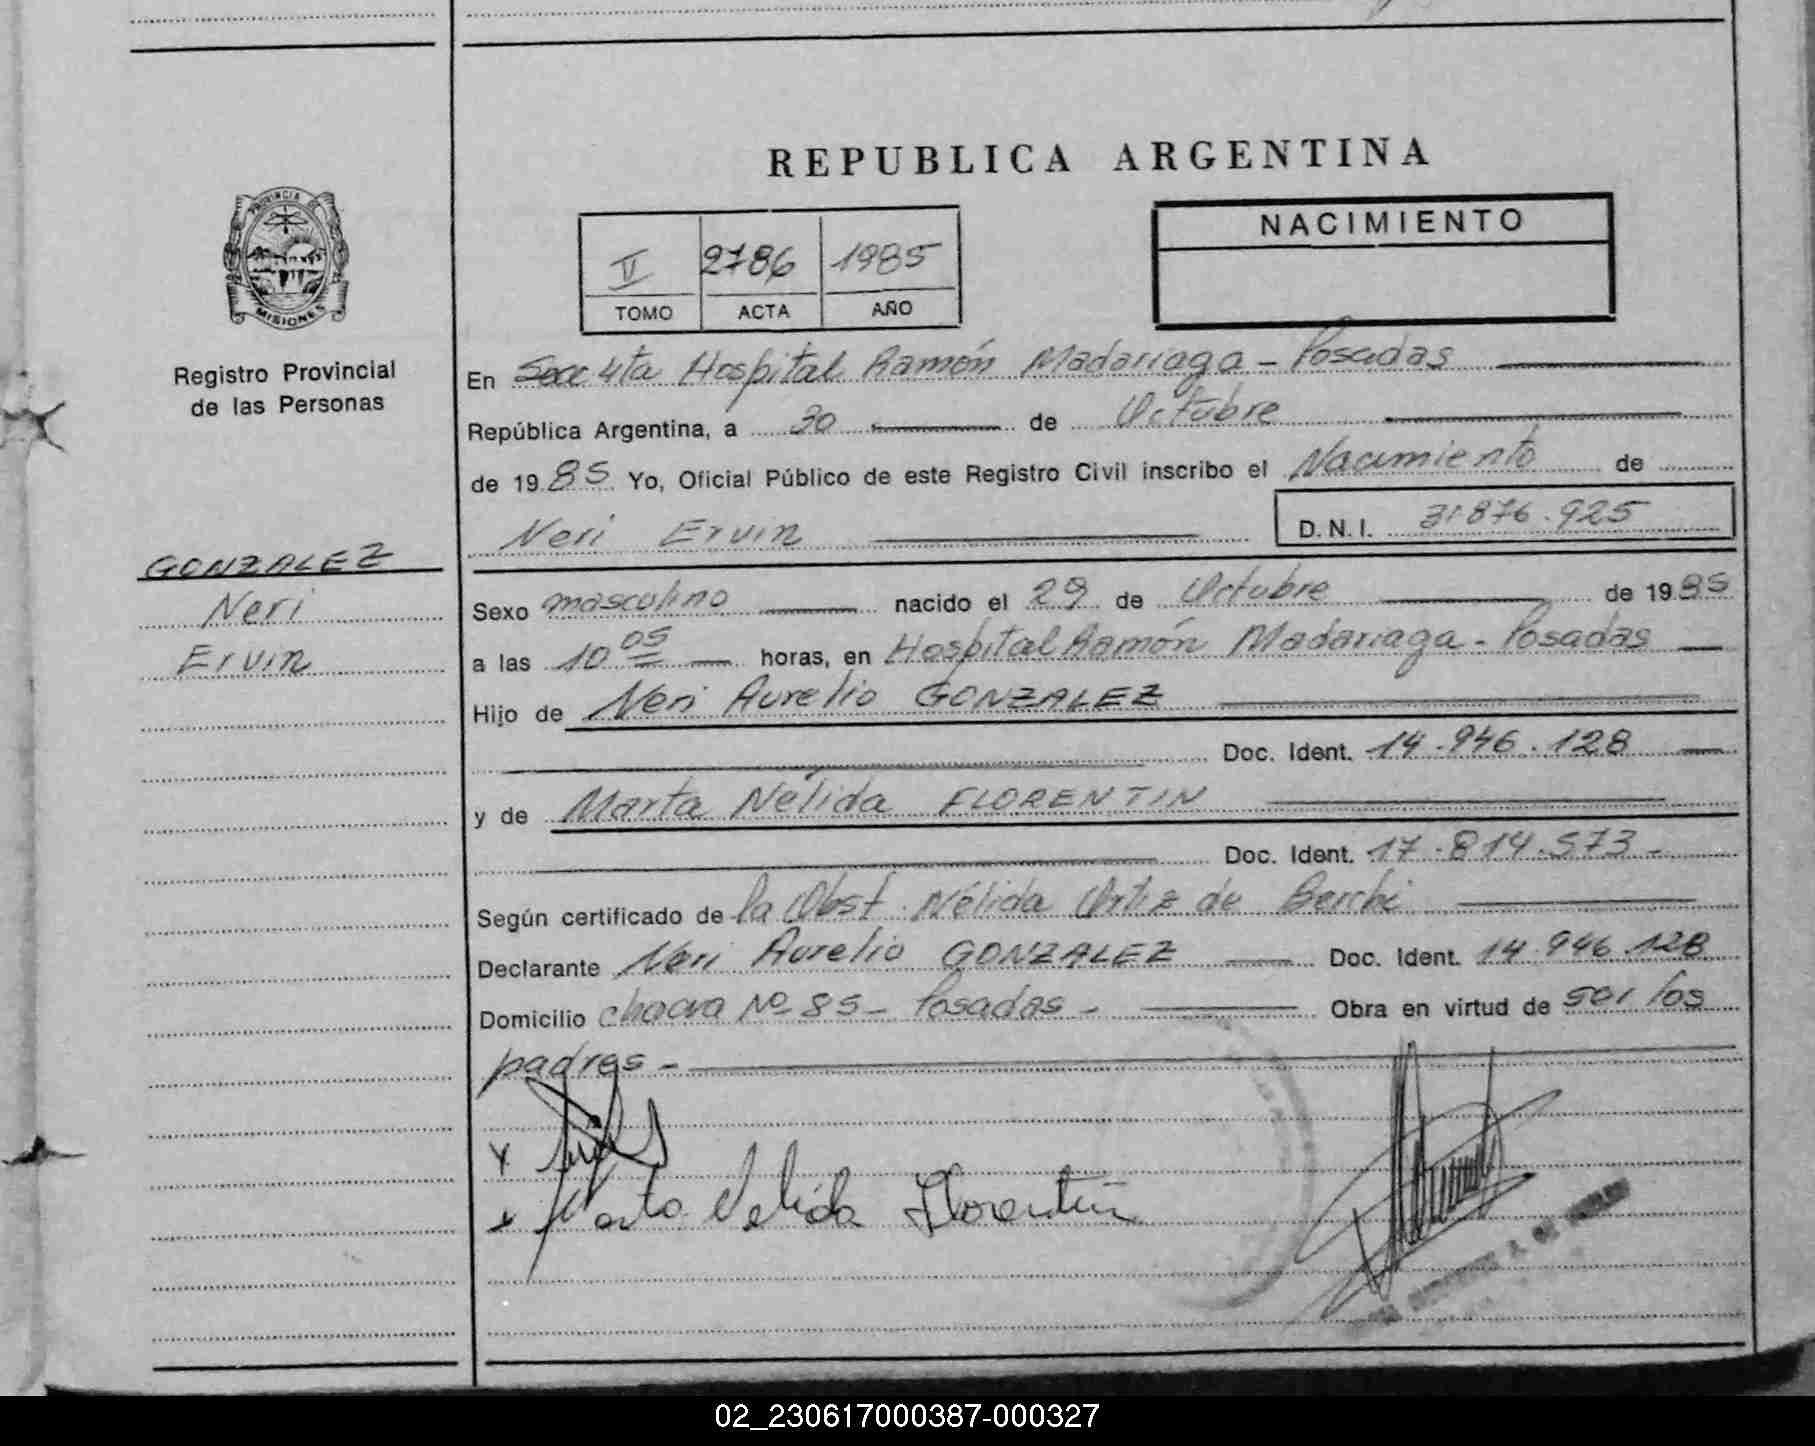 REPUBLICA ARGENTINA
PROVINCIA DE
MISIONES
Registro Provincial
de las Personas
II 2786 1985
TOMO ACTA AÑO
NACIMIENTO
En Secc 4ta Hospital Ramón Madariaga - Posadas
República Argentina, a 30 de Octubre
de 1985 Yo, Oficial Público de este Registro Civil inscribo el Nacimiento de
Neri Ervin D.N.I. 31.876.925
GONZALEZ
Neri
Ervin
Sexo masculino nacido el 29 de Octubre de 1985
a las 10 05 horas, en Hospital Ramón Madariaga - Posadas
Hijo de Neri Aurelio GONZALEZ
Doc. Ident. 14.946.128
y de Marta Nélida FLORENTIN
Doc. Ident. 17.814.573-
Según certificado de la Obst. Nélida Ortiz de Berchi
Declarante Neri Aurelio GONZALEZ Doc. Ident. 14.946.128
Domicilio chacra Nº 85 - Posadas - Obra en virtud de ser los
padres -
x
x Marta Nelida Florentin
02_230617000387-000327